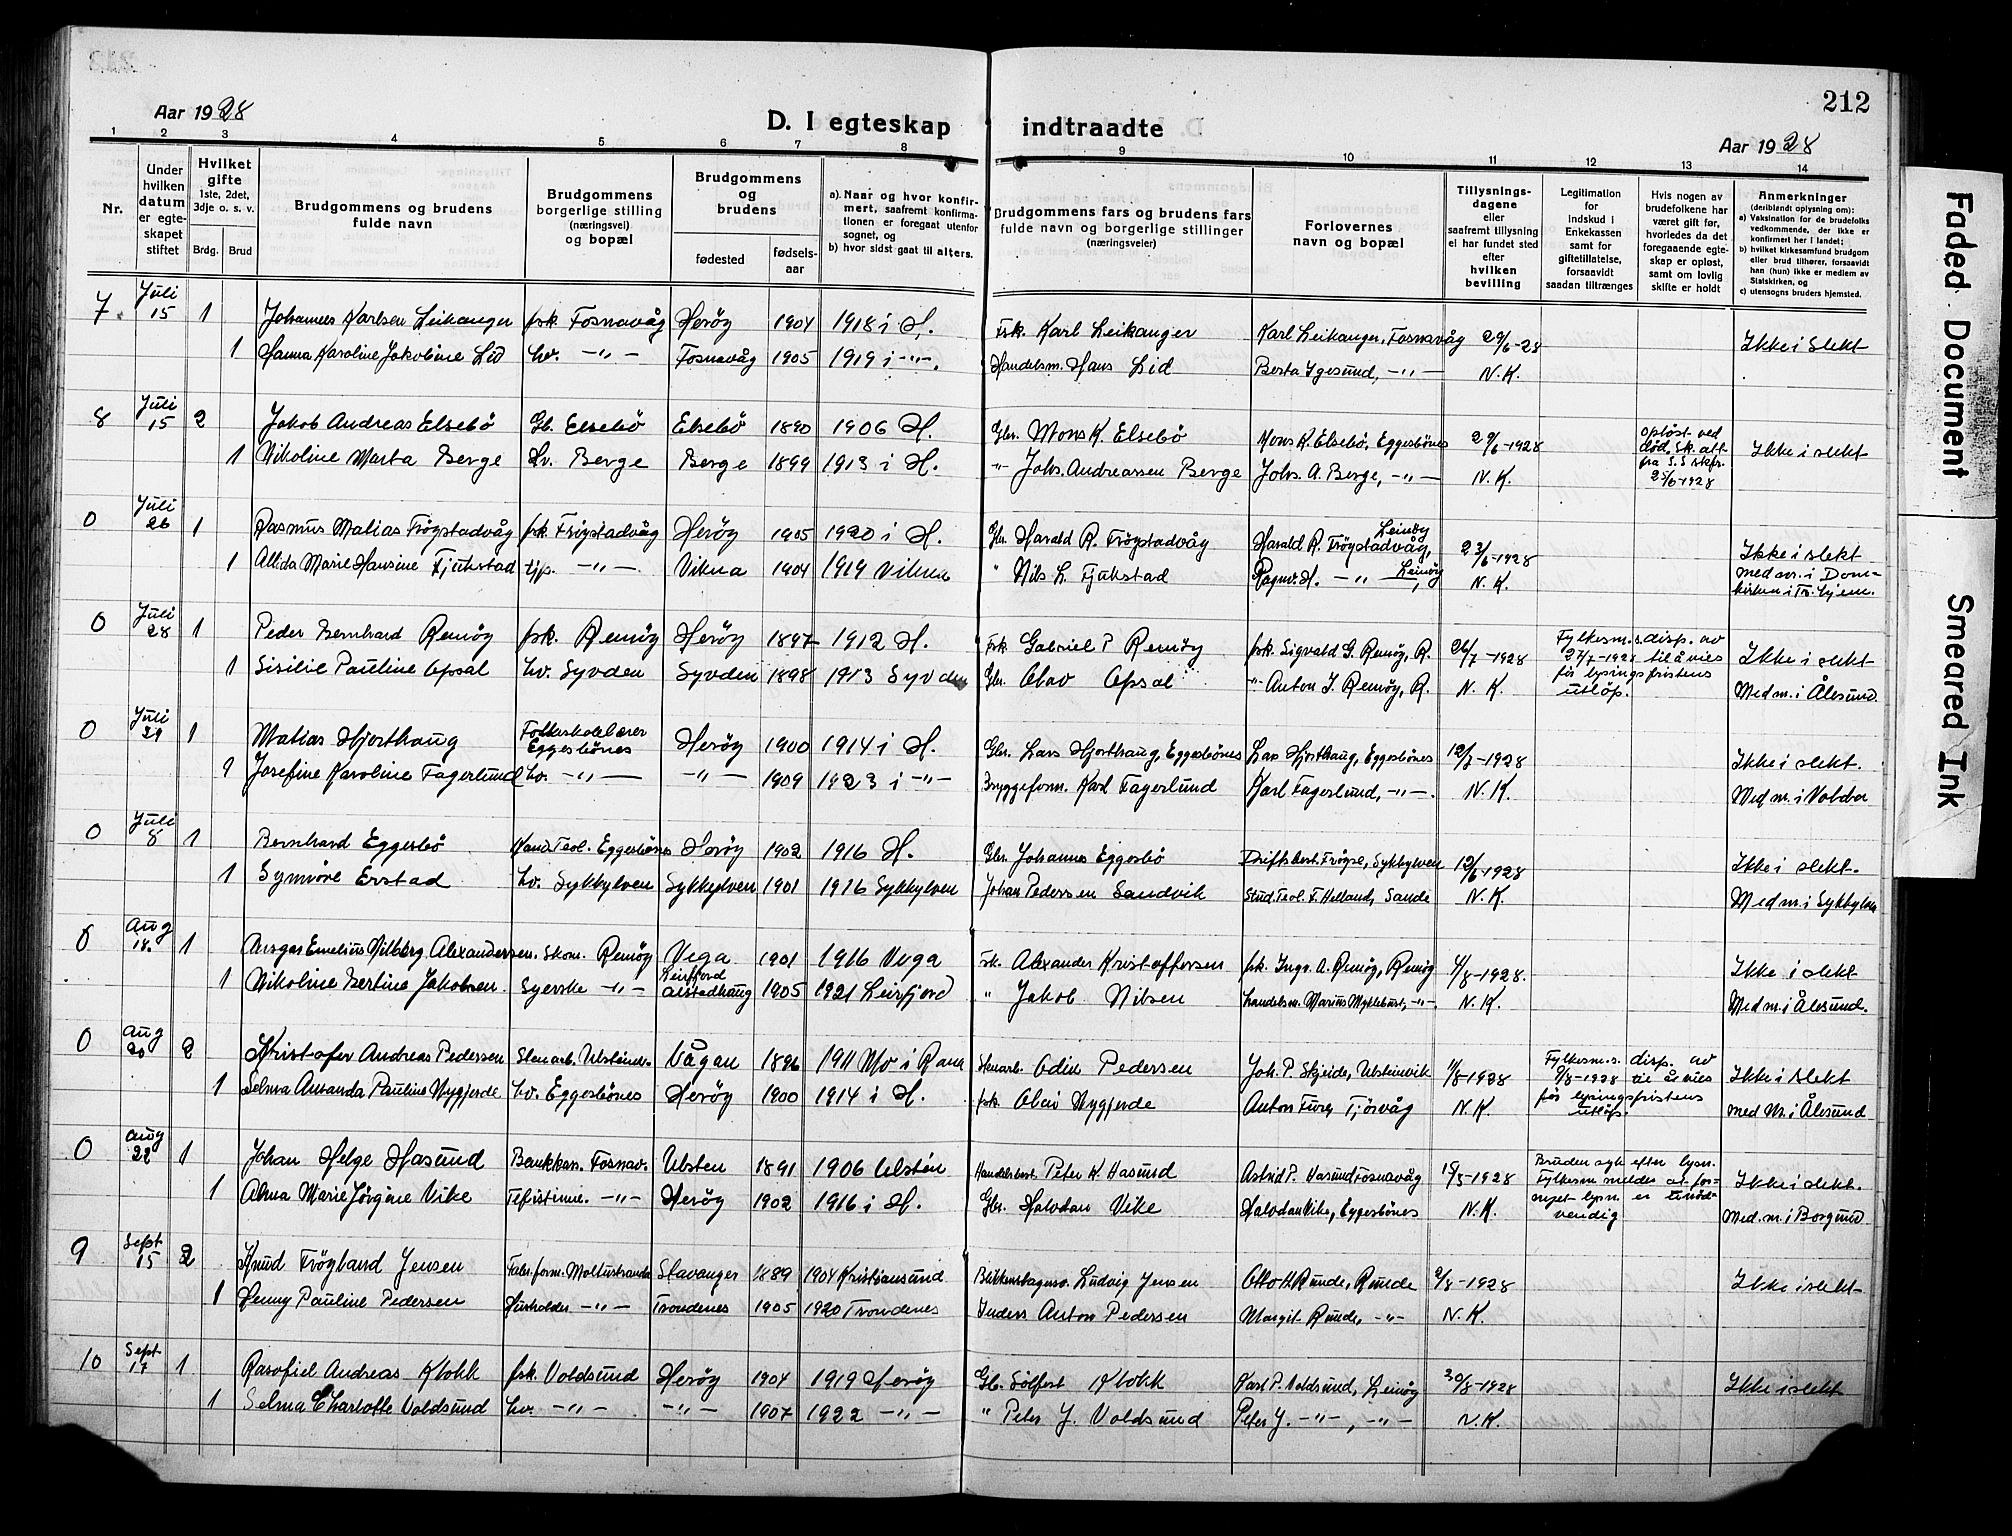 212
Aar 1928
D. I egteskap indtraadte
Aar 1928
1 2 3 4 5 6 7 8 9 10 11 12 13 14
Nr.
Under hvilken datum er egteskapet stiftet
Hvilket gifte 1ste, 2det, 3dje o. s. v.
Brdg. Brud
Brudgommens og brudens fulde navn
Brudgommens borgerlige stilling (næringsvei) og bopæl
Brudgommens og brudens
fødested
fødselsaar
a). Naar og hvor konfirmert, saafremt konfirmationen er foregaat utenfor sognet, og
b) hvor sidst gaat til alters.
Brudgommens fars og brudens fars fulde navn og borgerlige stillinger (næringsveier)
Forlovernes navn og bopæl
Tillysningsdagene eller saafremt tillysning ei har fundet sted efter hvilken bevilling
Legitimation for indskud i Enkekassen samt for giftetillatelse, forsaavidt saadan tiltrænges
Hvis nogen av brudefolkene har været gift før, hvorledes da det foregaaende egteskap er opløst, samt om lovlig skifte er holdt
Anmerkninger (deriblandt oplysning om):
a) Vaksination for de brudefolks vedkommende, der ikke er konfirmert her i landet;
b) hvilket kirkesamfund brudgom eller brud tilhører, forsaavidt han (hun) ikke er medlem av Statskirken, og
c) utensogns bruders hjemsted.
7. Juli 15 1 Johannes Karlsen Leikanger fsk. Fosnavåg Herøy 1904 1918 i H. Fsk. Karl Leikanger Karl Leikanger, Fosnavåg 29/6-28 Ikke i slekt
1 Hanna Karoline Jakobine Lid hv. -"- Fosnavåg 1905 1919 i -"-. Handelsm. Hans Lid Berta Igesund, -"- N.K.
8 Juli 15 2 Jakob Andreas Elsebö Gb. Elsebö Elsebö 1890 1906 H. Gbr. Mons K. Elsebö Mons K. Elsebö, Eggesbönes 29/6-1928 opløst ved død. Sk. att. fra S.S skfr. 25/6-1928 Ikke i slekt
1 Nikoline Marta Berge Hv. Berge Berge 1899 1913 i H. -"- Johs. Andreassen Berge Johs. A. Berge, -"- N.K.
0 Juli 26 1 Rasmus Matias Frøystadvåg fsk. Frøystadvåg Herøy 1905 1920 i H. Gbr. Harald R. Frøystadvåg Harald R. Frøystadvåg, Leinøy 23/6-1928 Ikke i slekt
1 Allda Marie Hansine Fjukstad tjp. -"- Vikna 1904 1919 Vikna " Nils L. Fjukstad Ragnv. H. -"- Leinøy N.K. med m. i Domkirken i Tr.hjem.
0 Juli 28 1 Peder Bernhard Remøy fsk. Remøy Herøy 1897 1912 H. Fsk Gabriel P Remøy fsk. Sigvald G. Remøy, R. 26/7-1928 Fylkesm.s. disp. av 27/7-1928 til å vies før lysingsfristens utløp. Ikke i slekt
1 Sisilie Pauline Opsal hv. Syvden Syvden 1898 1913 Syvden Gbr. Olav Opsal -"- Anton J. Remøy, R. N.K. Med m. i Ålesund.
0 Juli 29 1 Matias Hjorthaug Folkeskolelærer Eggesbönes Herøy 1900 1914 i H. Gbr. Lars Hjorthaug, Eggesbönes Lars Hjorthaug, Eggesbönes 12/7-1928 Ikke i slekt.
1 Josefine Karoline Fagerlund hv. -"- -"- 1909 1923 i -"- Bryggeform. Karl Fagerlund Karl Fagerlund, -"-. N.K. Med m. i Volda
0 Juli 8 1 Bernhard Eggesbö Kand. Teol. Eggesbönes Herøy 1902 1916 H. Gbr. Johannes Eggesbö Driftsbest. Frøyse, Sykkylven 12/6-1928 Ikke i slekt.
1 Synnöve Erstad hv. Sykkylven Sykkylven 1901 1916 Sykkylven Johan Pederssen Sandvik Stud. Teol. F. Helland, Sande N.K. Med m. i Sykkylven
0 Aug 18. 1 Ansgar Emelius Vilberg Alexandersen. Skom. Remøy Vega 1901 1916 Vega Fsk. Alexander Kristoffersen fsk. Ingv. A. Remøy, Remøy 4/8-1928. Ikke i slekt
1 Nikoline Bertine Jakobsen. Syerske -"- Leirfjord Alstadhaug 1905 1921 Leirfjord " Jakob Nilsen handelsm. Marius Myklebust, -"- N.K. Med m. i Ålesund.
0 Aug 20 2 Kristofer Andreas Pedersen Stenarb. Ulsteinv. Vågan 1896 1911 Mo i Rana Stenarb. Odin Pedersen Joh. P. Skjeide, Ulsteinvik 11/8-1928 Fylkesm.s. disp. av 9/8-1928 til å vies før lysingsfristens utløp. Ikke i slekt
1 Selma Amanda Pauline Nygjerde hv. Eggesbönes Herøy 1900 1914 i H. fsk. Olai Nygjerde Anton Furø Tjörvåg N.K. med m. i Ålesund
0 Aug 22 1 Johan Helge Hasund Bankkas. Fosnav. Ulsten 1891 1906 Ulsten Handelsbest Peter K Hasund Astrid P. Hasund Fosnavåg 15/5-1928 Bruden syk efter lysn. Fylkesm. melder at fornyet lysn. er unødvendig Ikke i slekt.
1 Alma Marie Jörgine Vike Telefistinne. -"- Herøy 1902 1916 i H. Gbr. Halvdan Vike Halvdan Vike, Eggesbönes N.K. Med. m. i Borgund
9 Sept 15 2 Knud Tröyland Jensen Fabr.form. Moltustranda Stavanger 1889 1904 Kristiansund Blikkenslagersv. Ludvig Jensen Otto H Runde, Runde 9/8-1928 Ikke i slekt
1 Henny Pauline Pedersen Husholder. -"- Trondenes 1905 1920 Trondenes Inders Anton Pedersen Margit Runde, -"- N.K.
10 Sept 17 1 Rasofiel Andreas Klokk fsk. Voldsund Herøy 1904 1919 Herøy Gb. Sölfest Klokk Karl P. Voldsund, Leinøy 30/8-1928 Ikke i slekt
1 Selma Charlotte Voldsund hv. -"- -"- 1907 1922 -"- " Peter J. Voldsund Peter J. -"-, -"- N.K.
Faded Document
Smeared Ink